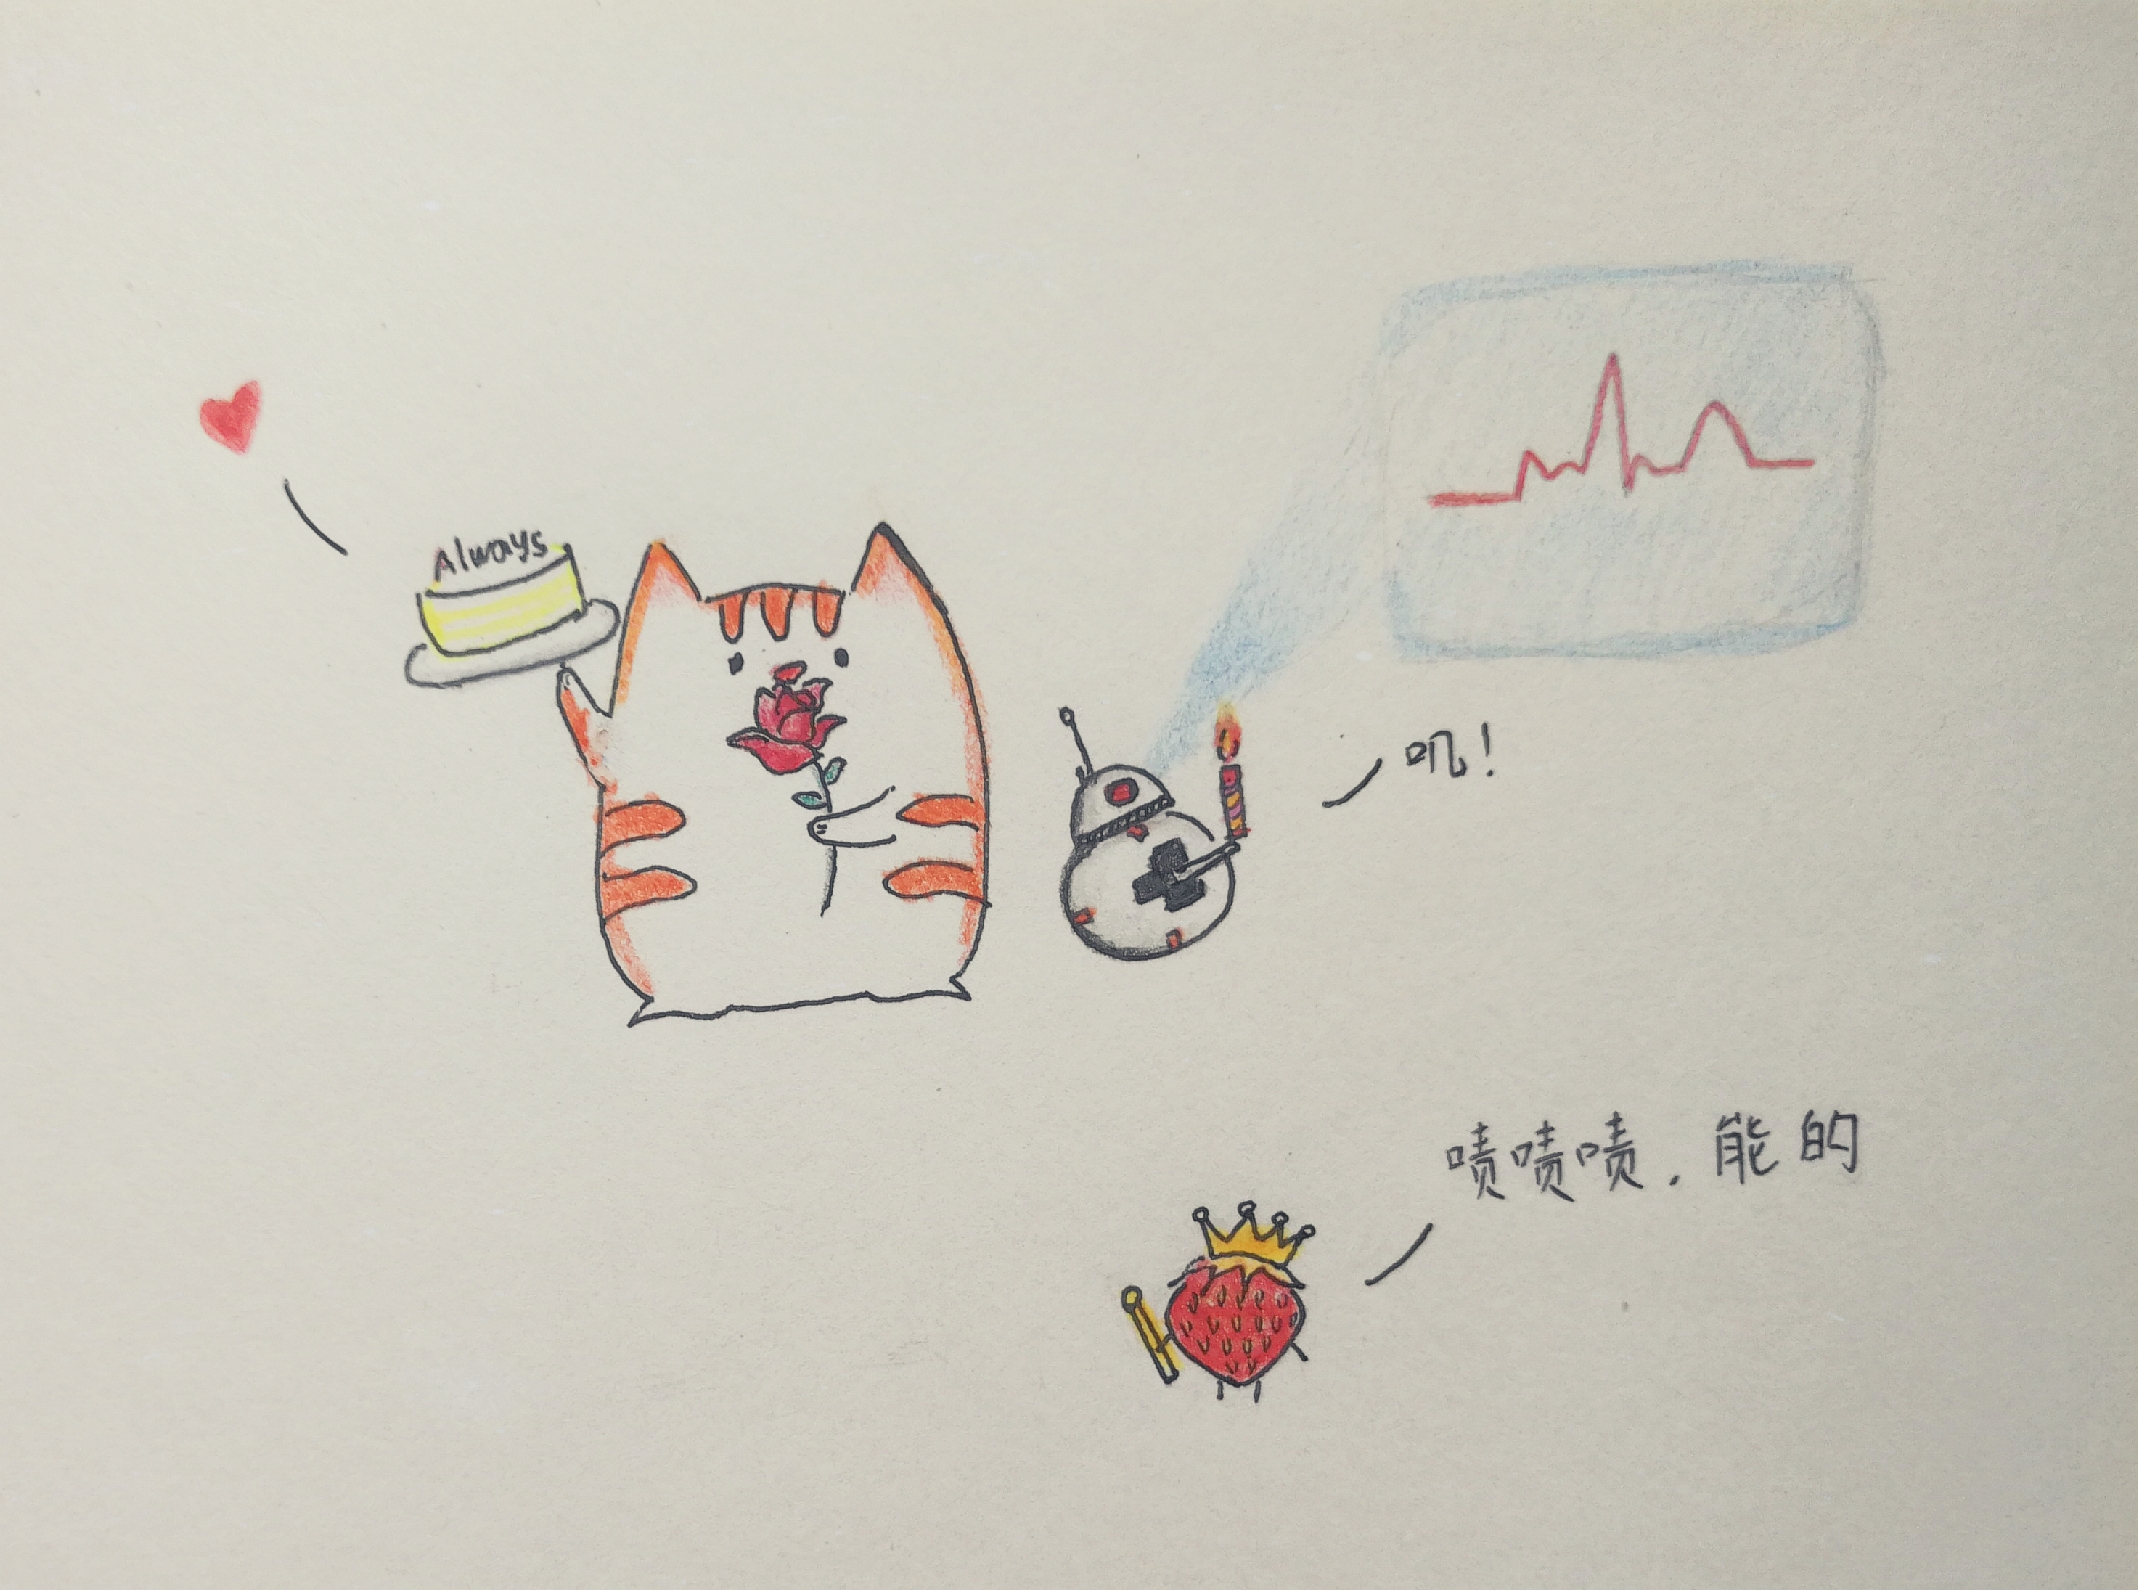 Always
叽！
啧啧啧，能的